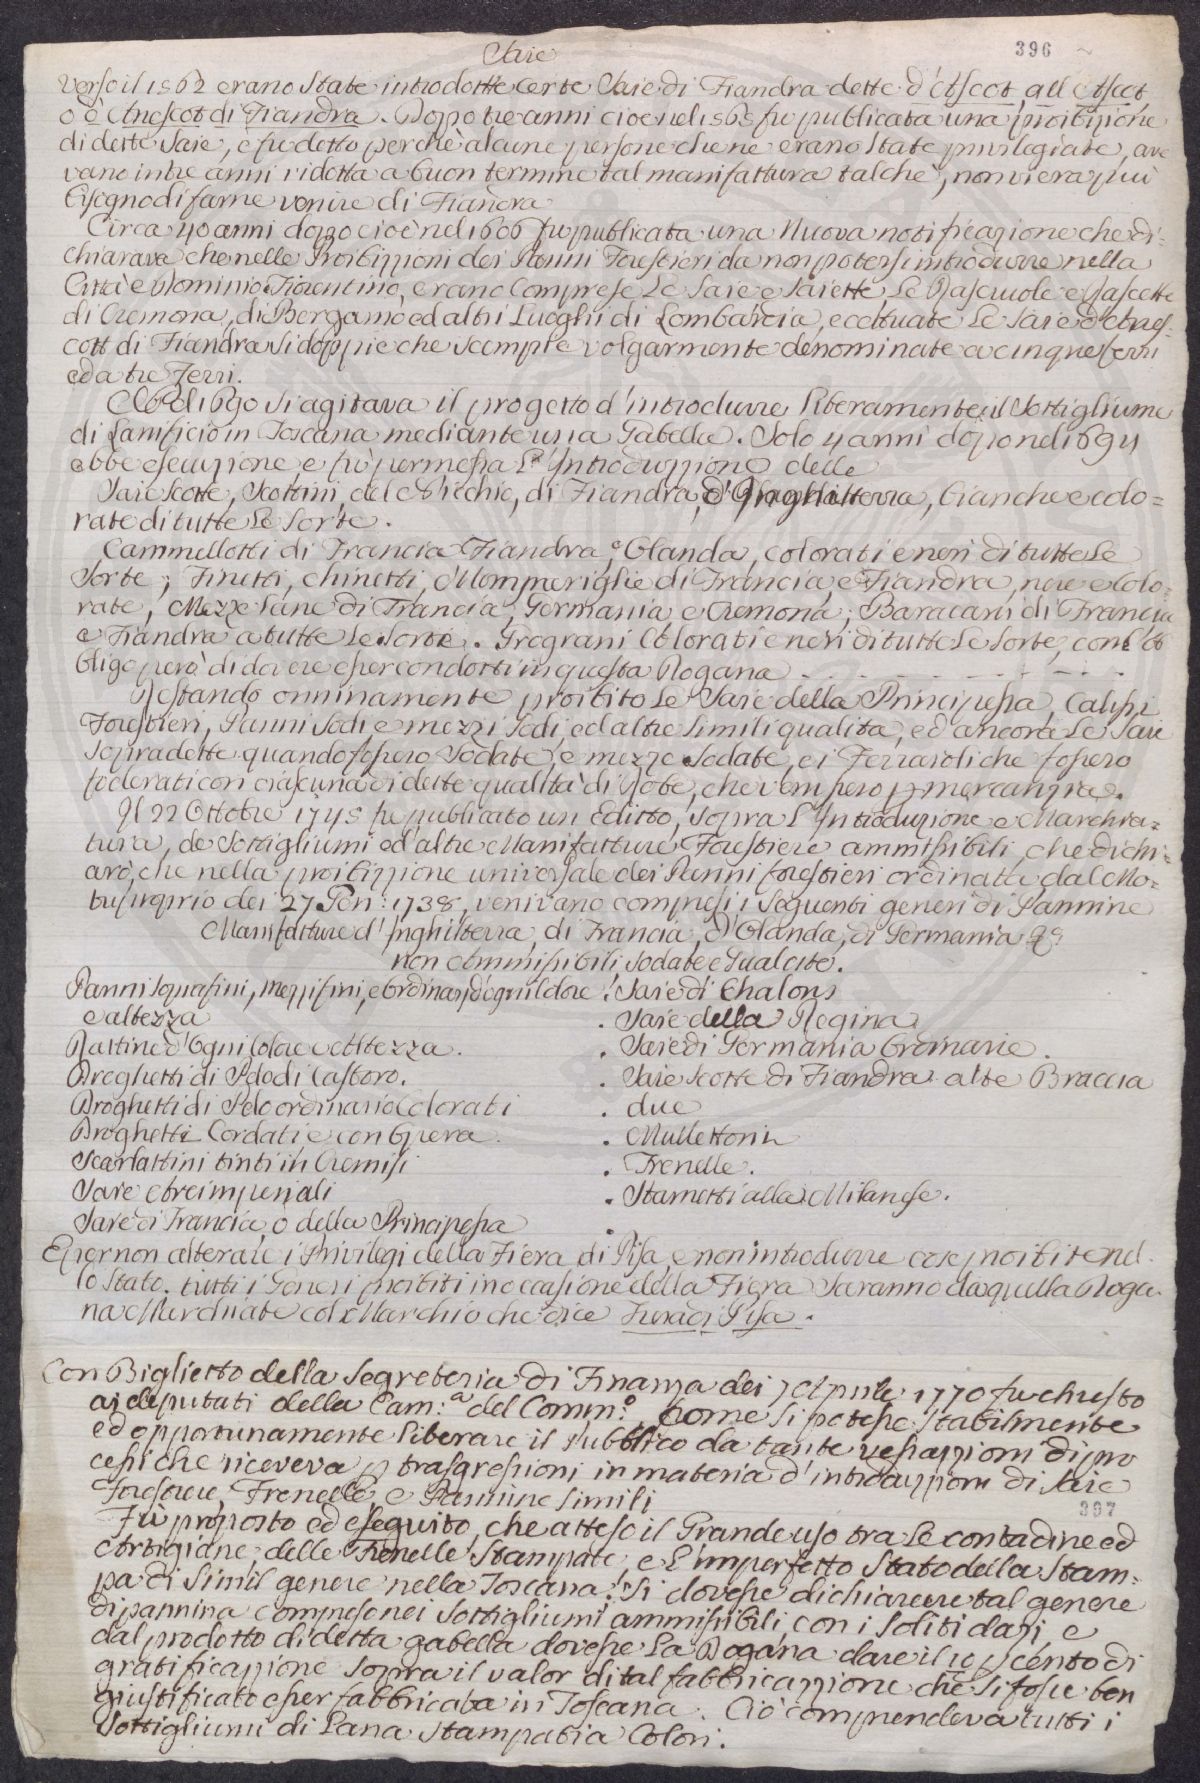 396
Saie
Verso il 1562 erano state introdotte certe Saie di Fiandra dette d'Ascot, all Ascot,
o è Anescot di Fiandra. Doppo tre anni cioe nel 1565 fu publicata una proibizione
di dette Saie, e fu detto perche alcune persone che ne erano state privilegiate, ave
vano in tre anni ridotta a buon termine tal manifattura talche, non vi era più
bisogno di farne venire di Fiandra
Circa 40 anni doppo cioè nel 1606 fu publicata una Nuova notificazione che di=
chiarava che nelle Proibizzioni dei Panni Forestieri da non potersi introdurre nella
Città e Dominio Fiorentino, erano Comprese Le Saie e Saiette Le Rasciuole e Rascette
di Cremona, di Bergamo ed altri Luoghi di Lombardia, eccettuate Le Saie d'Anes=
cott di Fiandra si doppie che scempie volgarmente denominate a cinque ferri
e da tre Ferri.
Nel 1690 si agitava il progetto d'introdurre Liberamente il Sottigliume
di Lanificio in Toscana mediante una Gabella. Solo 4 anni doppo nel 1694
ebbe esecuzione e fu permessa L'Introduzzione delle
Saie scotte, Scottini, del Nicchio, di Fiandra, d'Inghilterra, bianche e colo=
rate di tutte Le Sorte.
Cammellotti di Francia Fiandra, e Olanda, colorati e neri di tutte Le
Sorte; Finetti, chinetti, e Mompeniglie di Francia, e Fiandra, nere e Colo=
rate, Mezze Lane di Francia, Germania, e Cremona; Baracani di Francia
e Fiandra a tutte Le Sorte. Grograni Colorati e neri di tutte Le Sorte, con L'ob
bligo però di dovere esser condotti in questa Dogana
Restando onninamente proibito Le Saie della Principessa, Calissi
Forestieri, Panni Sodi e mezzi Sodi, ed altre Simili qualità, ed ancora Le Saie
Sopradette quando fossero Sodate, e mezze Sodate, ei Ferraioli che fossero
foderati con ciascuna di dette qualità di Robe, che venissero p mercanzia.
Il 22 Ottobre 1745 fu publicato un Editto, sopra L'Introduzione e Marchia=
tura, de Sottigliumi ed altre Manifatture Forestiere ammissibili, che dichi=
arò, che nella proibizzione universale dei Panni forestieri ordinata dal Mo=
tuproprio dei 27 Gen: 1738, venivano compresi i seguenti generi di Pannine
Manifatture d'Inghilterra, di Francia, d'Olanda, di Germania &c
non Ammissibili sodate e Gualcite.
Panni soprafini, mezzi fini, e Ordinari d'ogni colore
e altezza
Rattine d'Ogni Colore e Altezza.
Droghetti di Pelo di Castoro.
Droghetti di Pelo ordinario Colorati
Droghetti Cordati e con Opera
Scarlattini tinti in Cremisi
Saie Atreimperiali
Saie di Francia, o della Principessa
Saie di Chalons
Saie della Regina
Saie di Germania Ordinarie.
Saie scotte di Fiandra alte Braccia
due
Mullettoni
Frenelle.
Stametti alla Milanese.
E per non alterare i Privilegi della Fiera di Pisa, e non introdurre cose proibite nel
lo Stato. tutti i Generi proibiti in occasione della Fiera Saranno da quella Doga=
na Marchiate col Marchio che dice Fiera di Pisa.
Con Biglietto della Segreteria di Finanza dei 7 Aprile 1770 fu chiesto
ai deputati della Cam:a del Comm:o come si potesse stabilmente
ed opportunamente liberare il Pubblico da tante vessazzioni di pro
cessi che riceveva p trasgressioni in materia d'introduzzioni di Saie
Forestiere, Frenelle e Pannine simili
397
Fù proposto ed eseguito, che atteso il Grande uso tra Le contadine ed
Artigiane, delle Frenelle Stampate, e L'imperfetto Stato della Stam=
pa di simil genere nella Toscana, Si dovesse dichiarare tal genere
di pannina compreso nei Sottigliumi ammissibili, con i soliti dazi, e
dal prodotto di detta gabella dovesse La Dogana dare il 10 p cento di
gratificazzione sopra il valor di tal fabbricazzione che si fosse ben
giustificato esser fabbricata in Toscana. Ciò comprendeva tutti i
Sottigliumi di Lana stampati a Colori.